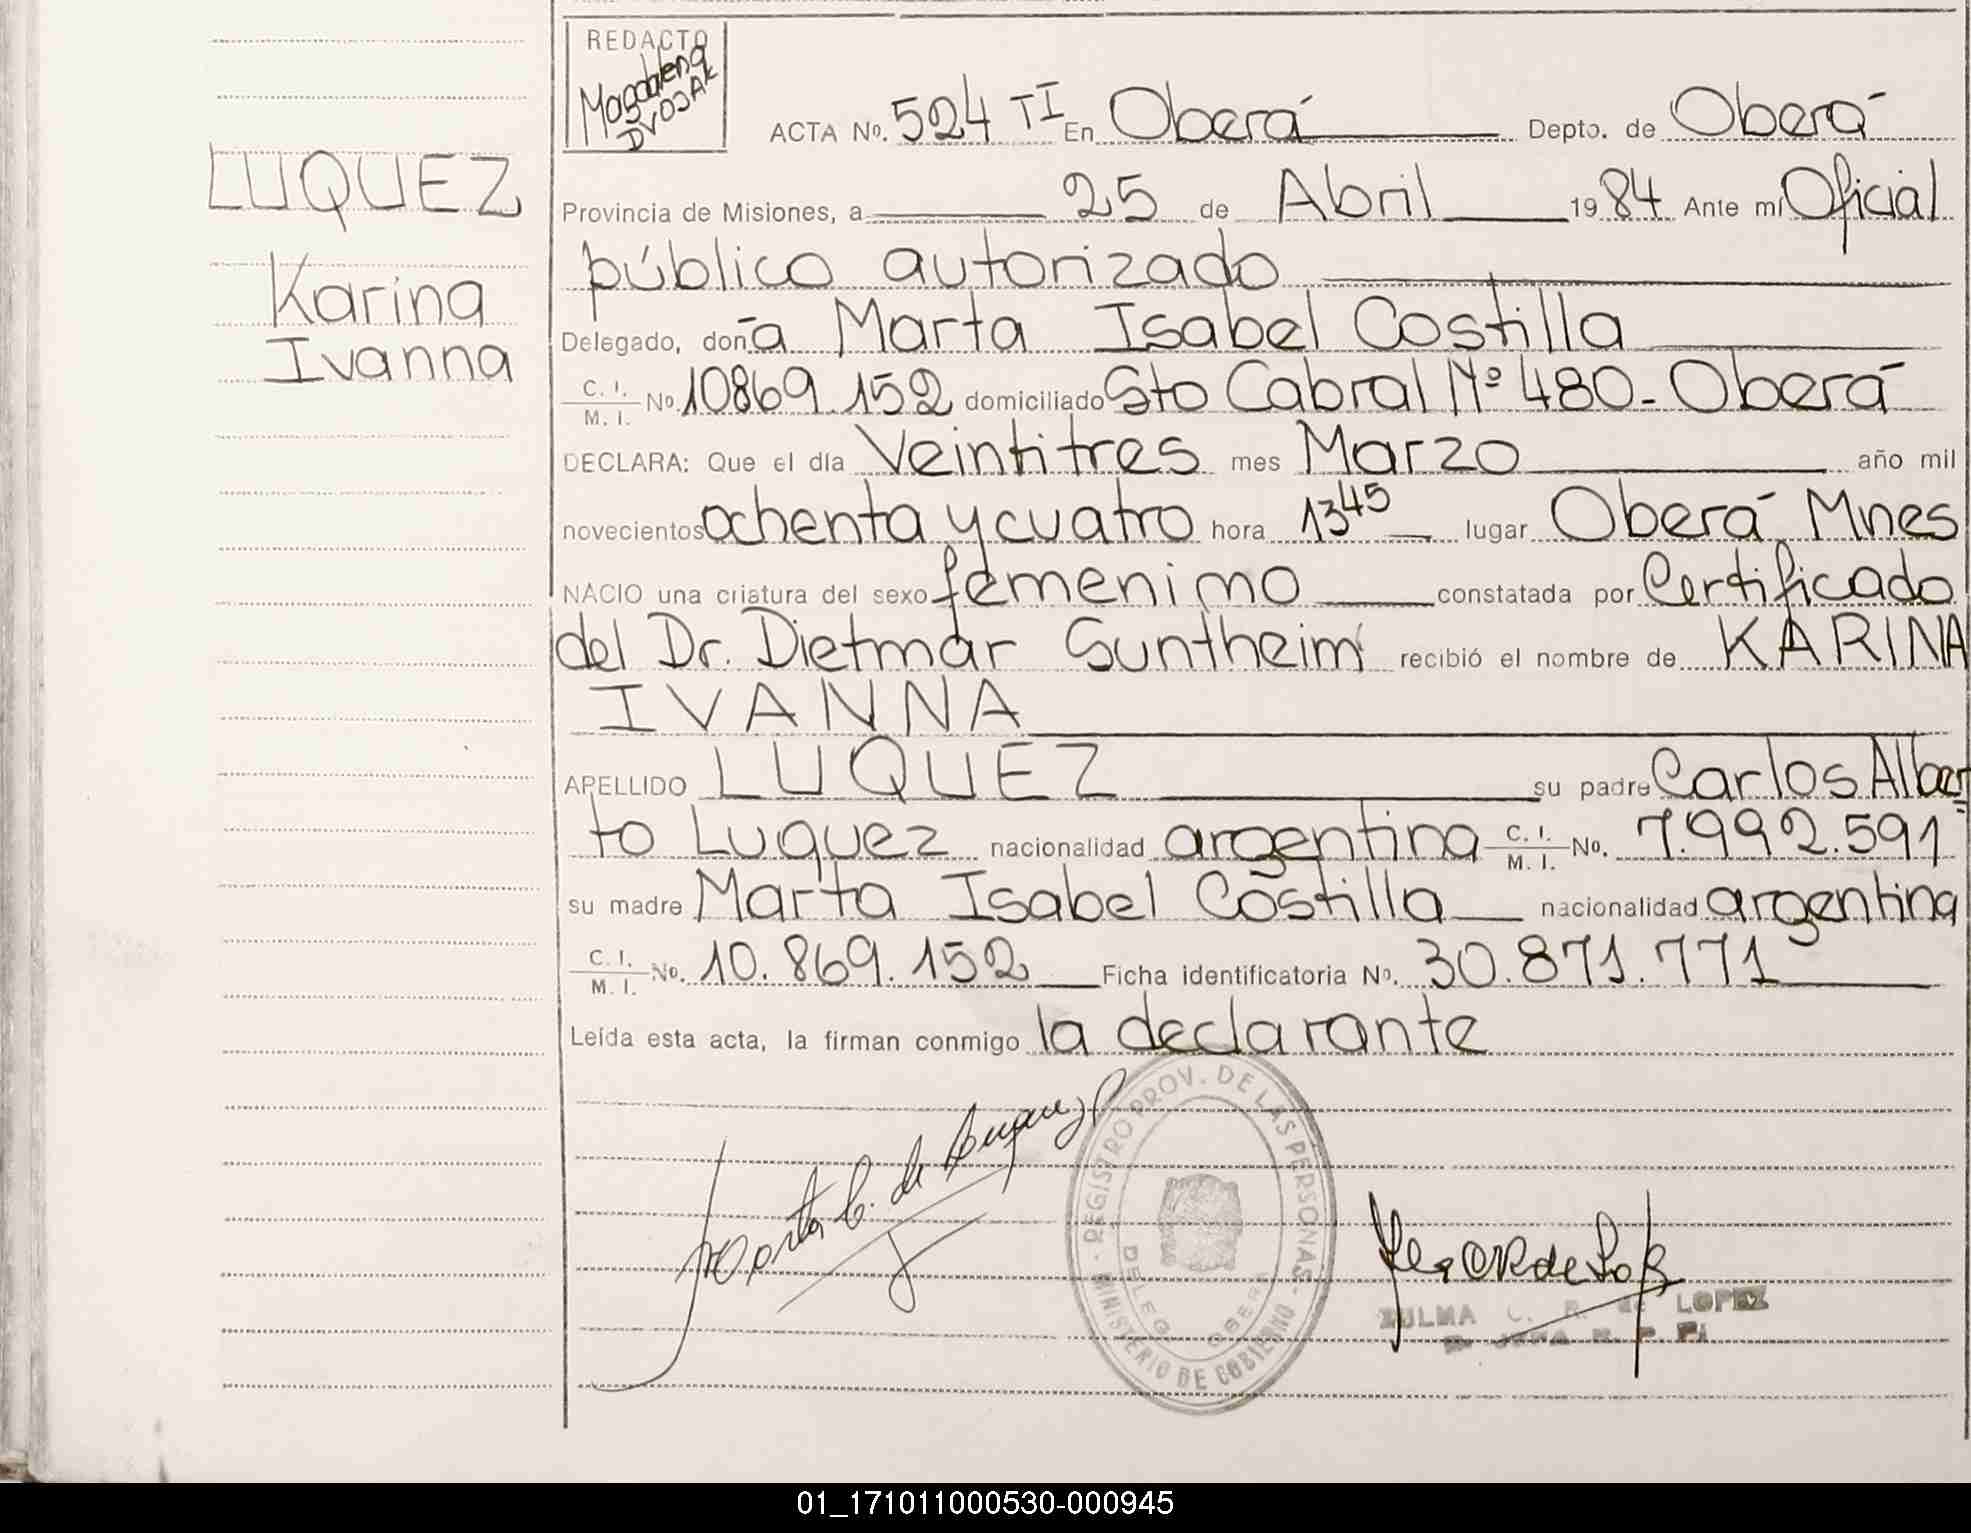 REDACTO
Magdalena
DVOJAK
ACTA No. 524 TI En Oberá Depto. de Oberá
LUQUEZ
Karina
Ivanna
Provincia de Misiones, a 25 de Abril 1984 Ante mí Oficial
público autorizado
Delegado, doña Marta Isabel Costilla
C. I. / M. I. No. 10869.152 domiciliado Sto Cabral Nº 480-Oberá
DECLARA: Que el día Veintitres mes Marzo año mil
novecientos ochenta y cuatro hora 13 45 lugar Oberá Mnes
NACIO una criatura del sexo femenino constatada por Certificado
del Dr. Dietmar Suntheim recibió el nombre de KARINA
IVANNA
APELLIDO LUQUEZ su padre Carlos Alber
to Luquez nacionalidad argentina C. I. / M. I. No. 7.992.591
su madre Marta Isabel Costilla nacionalidad argentina
C. I. / M. I. No. 10.869.152 Ficha identificatoria No. 30.871.771
Leída esta acta, la firman conmigo la declarante
Marta C. de Luquez
REGISTRO PROV. DE LAS PERSONAS
MINISTERIO DE GOBIERNO
ZULMA C. R. de LOPEZ
01_171011000530-000945